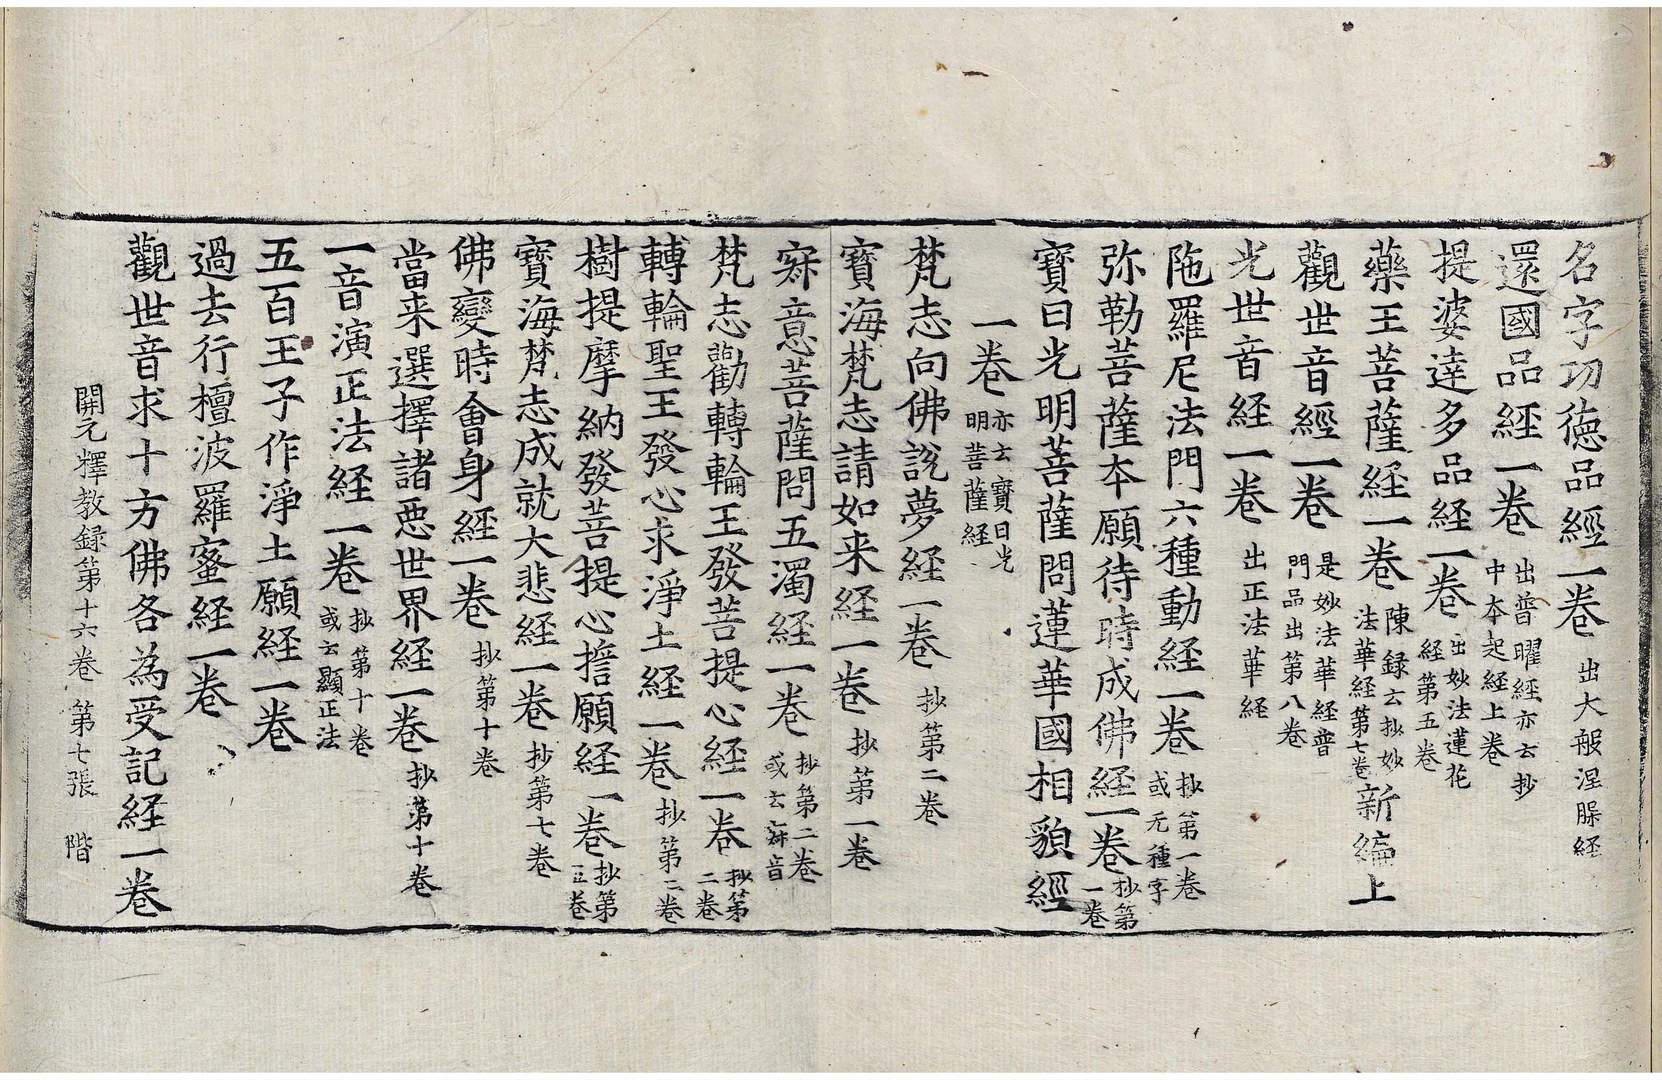 名字功德品經一卷 出大般涅槃経
還國品経一卷 出普曜経亦云抄中本起経上卷
提婆達多品経一卷 出妙法蓮花経第五卷
藥王菩薩経一卷 陳録云抄妙法華経第七卷新編上
觀世音經一卷 是妙法華経普門品出第八卷
光世音経一卷 出正法華経
陁羅尼法門六種動経一卷 抄第一卷或无種字
弥勒菩薩本願待時成佛経一卷 抄第一卷
寳日光明菩薩問蓮華國相貌經
一卷 亦云寳日光明菩薩経
梵志向佛說夢経一卷 抄第二卷
寳海梵志請如来経一卷 抄第一卷
寂意菩薩問五濁経一卷 抄第二卷或云寂音
梵志勸轉輪王發菩提心経一卷 抄第二卷
轉輪聖王發心求淨土経一卷 抄第二卷
樹提摩納發菩提心擔願経一卷 抄第三卷
寳海梵志成就大悲経一卷 抄第七卷
佛變時會身経一卷 抄第十卷
當来選擇諸惡世界経一卷 抄第十卷
一音演正法経一卷 抄第十卷或云顯正法
五百王子作淨土願経一卷
過去行檀波羅蜜経一卷
觀世音求十方佛各為受記経一卷
開元釋教録第十六卷 第七張 階